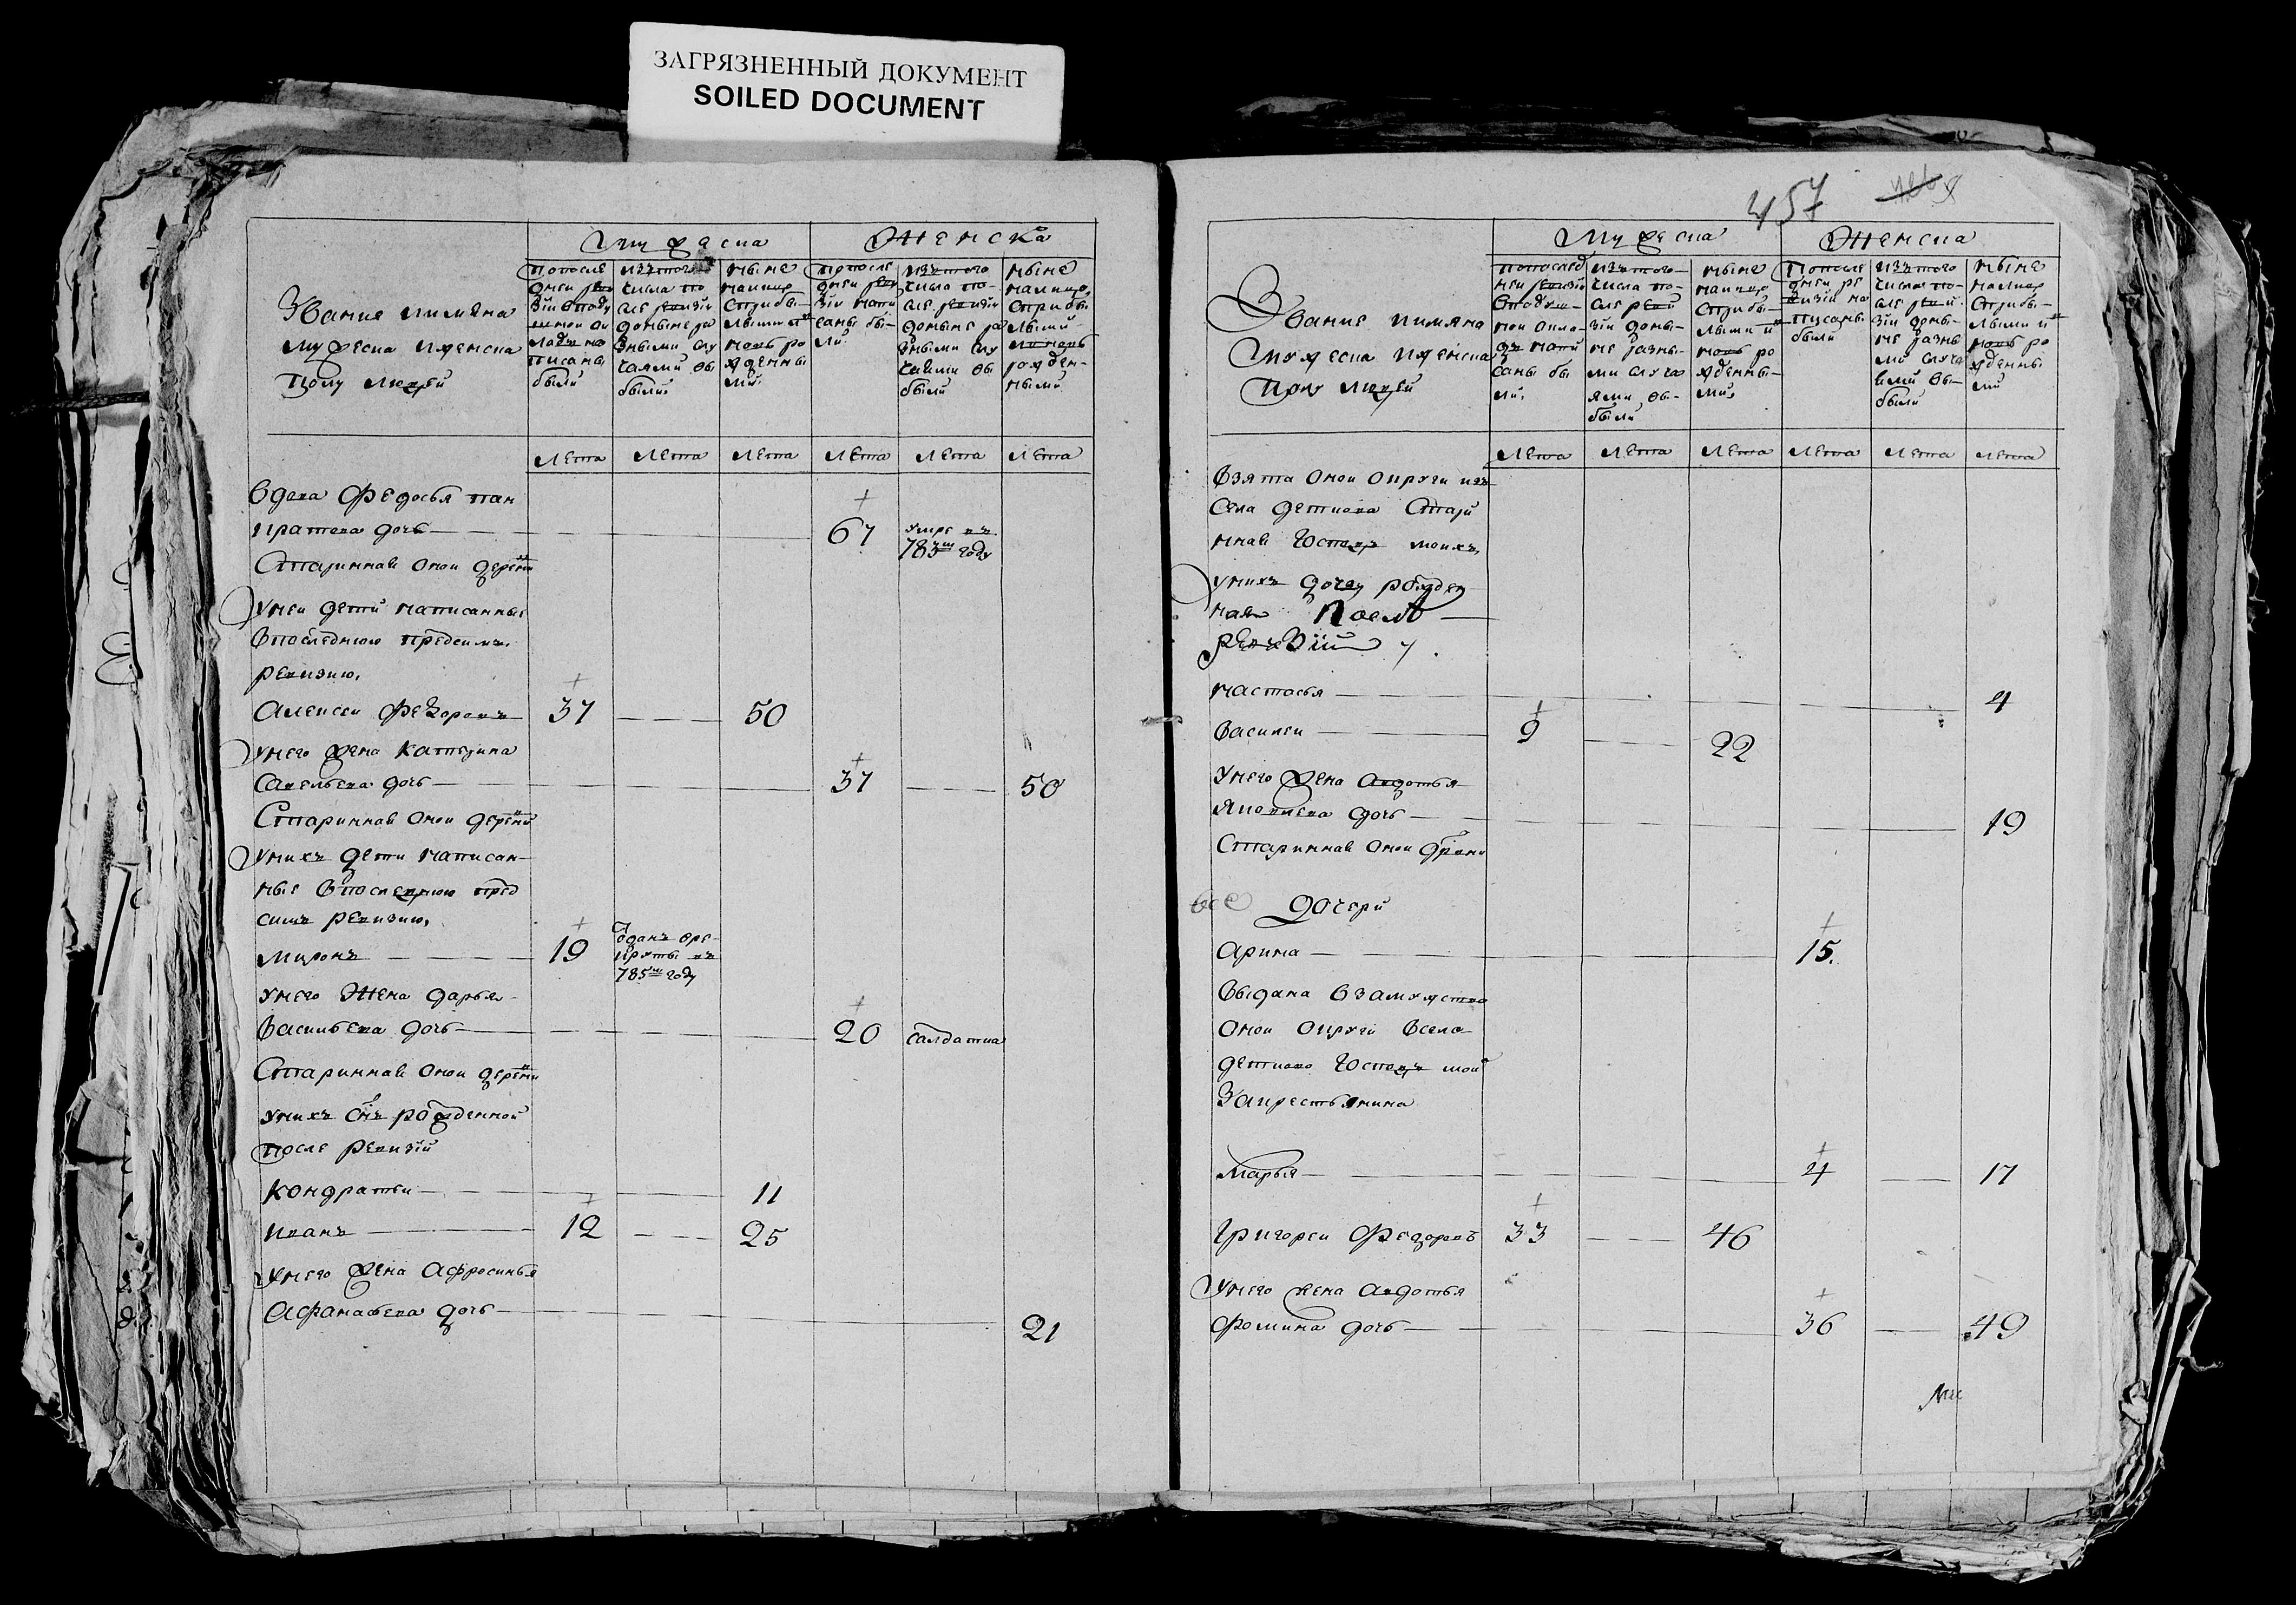 ЗАГРЯЗНЕННЫЙ ДОКУМЕНТ
SOILED DOCUMENT
Мужеска
Женска
Звание и имяна
мужеска и женска
полу людей
по после
дней реви
зии в поду
шной ок
ладе на
писаны
были
изъ того
числа по
сле ревизии
до ныне ра
зными слу
чаями вы
были
ныне
на лицо
с прибы
лыми и
вновь ро
жденны
ми
по после
дней реви
зии напи
саны бы
ли
изъ того
числа по
сле ревизии
до ныне ра
зными слу
чаями вы
были
ныне
на лицо
с прибы
лыми и
вновь
рожден
ными
лета лета лета лета лета лета
вдова Федосья пан
кратова дочь 67 умре въ
783м году
Стариннай оной деревни
у ней дети написанные
в последнюю пред сим
ревизию
Алексеи Федоровъ 37 50
у него жена Катерина
Савельева дочь 37 50
Стариннай оной деревни
у нихъ дети написан
ные в последнюю пред
симъ ревизию
Миронъ 19 отданъ в ре
круты въ
785м году
у него жена Дарья
Васильева дочь 20 салдатка
Стариннай оной деревни
у нихъ снъ рожденной
после ревизии
Кондратеи 11
Иванъ 12 25
у него жена Афросинья
Афанасьева дочь 21
457
Мужеска
Женска
Звание и имяна
мужеска и женска
полу людей
по послед
ней ревизии
в подуш
ном окла
де напи
саны бы
ли
изъ того
числа по
сле реви
зии до ны
не разны
ми случа
ями вы
были
ныне
на лицо
с прибы
лыми и
вновь ро
жденны
ми
по после
дней ре
визии на
писаны
были
изъ того
числа по
сле реви
зии до ны
не разны
ми случа
ями вы
были
ныне
на лицо
с прибы
лыми и
вновь ро
жденны
ми
лета лета лета лета лета лета
взята оной округи изъ
села Деткова Стари
ннай господ моихъ
у нихъ дочь рожден
ная после
ревизии
Настасья 4
Василеи 9 22
у него жена Авдотья
Яковлева дочь 19
Стариннай оной дрвни
дочери
Арина 15.
выдана в замужство
оной округи в село
Детково господъ мои
за крестьянина
Марья 4 17
Григореи Федоровъ 33 46
у него жена Авдотья
Фомина дочь 36 49